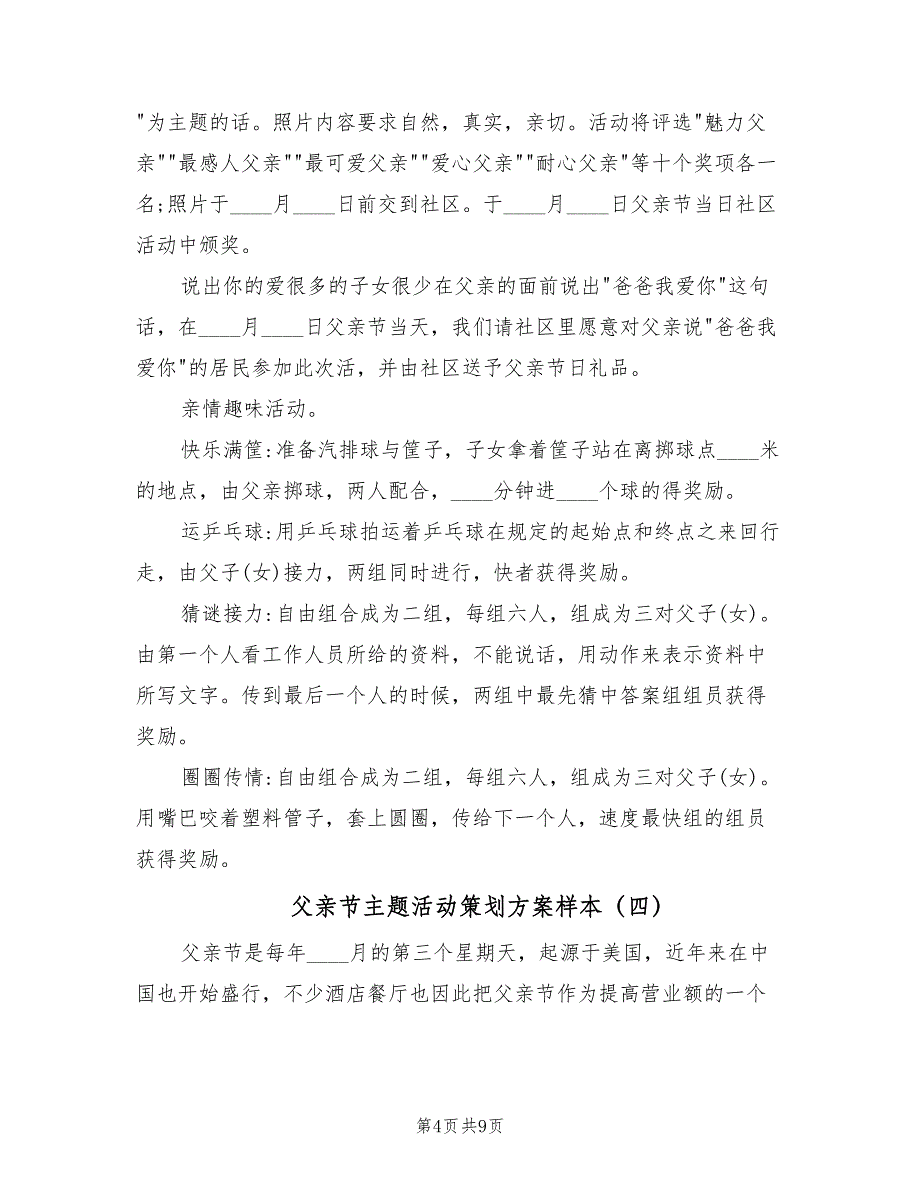 "为主题的话。照片内容要求自然，真实，亲切。活动将评选"魅力父
亲""最感人父亲""最可爱父亲""爱心父亲""耐心父亲"等十个奖项各一
名;照片于____月____日前交到社区。于____月____日父亲节当日社区
活动中颁奖。
说出你的爱很多的子女很少在父亲的面前说出"爸爸我爱你"这句
话，在____月____日父亲节当天，我们请社区里愿意对父亲说"爸爸我
爱你"的居民参加此次活，并由社区送予父亲节日礼品。
亲情趣味活动。
快乐满筐:准备汽排球与筐子，子女拿着筐子站在离掷球点____米
的地点，由父亲掷球，两人配合，____分钟进____个球的得奖励。
运乒乓球:用乒乓球拍运着乒乓球在规定的起始点和终点之来回行
走，由父子(女)接力，两组同时进行，快者获得奖励。
猜谜接力:自由组合成为二组，每组六人，组成为三对父子(女)。
由第一个人看工作人员所给的资料，不能说话，用动作来表示资料中
所写文字。传到最后一个人的时候，两组中最先猜中答案组组员获得
奖励。
圈圈传情:自由组合成为二组，每组六人，组成为三对父子(女)。
用嘴巴咬着塑料管子，套上圆圈，传给下一个人，速度最快组的组员
获得奖励。
父亲节主题活动策划方案样本（四）
父亲节是每年____月的第三个星期天，起源于美国，近年来在中
国也开始盛行，不少酒店餐厅也因此把父亲节作为提高营业额的一个
第4页 共9页